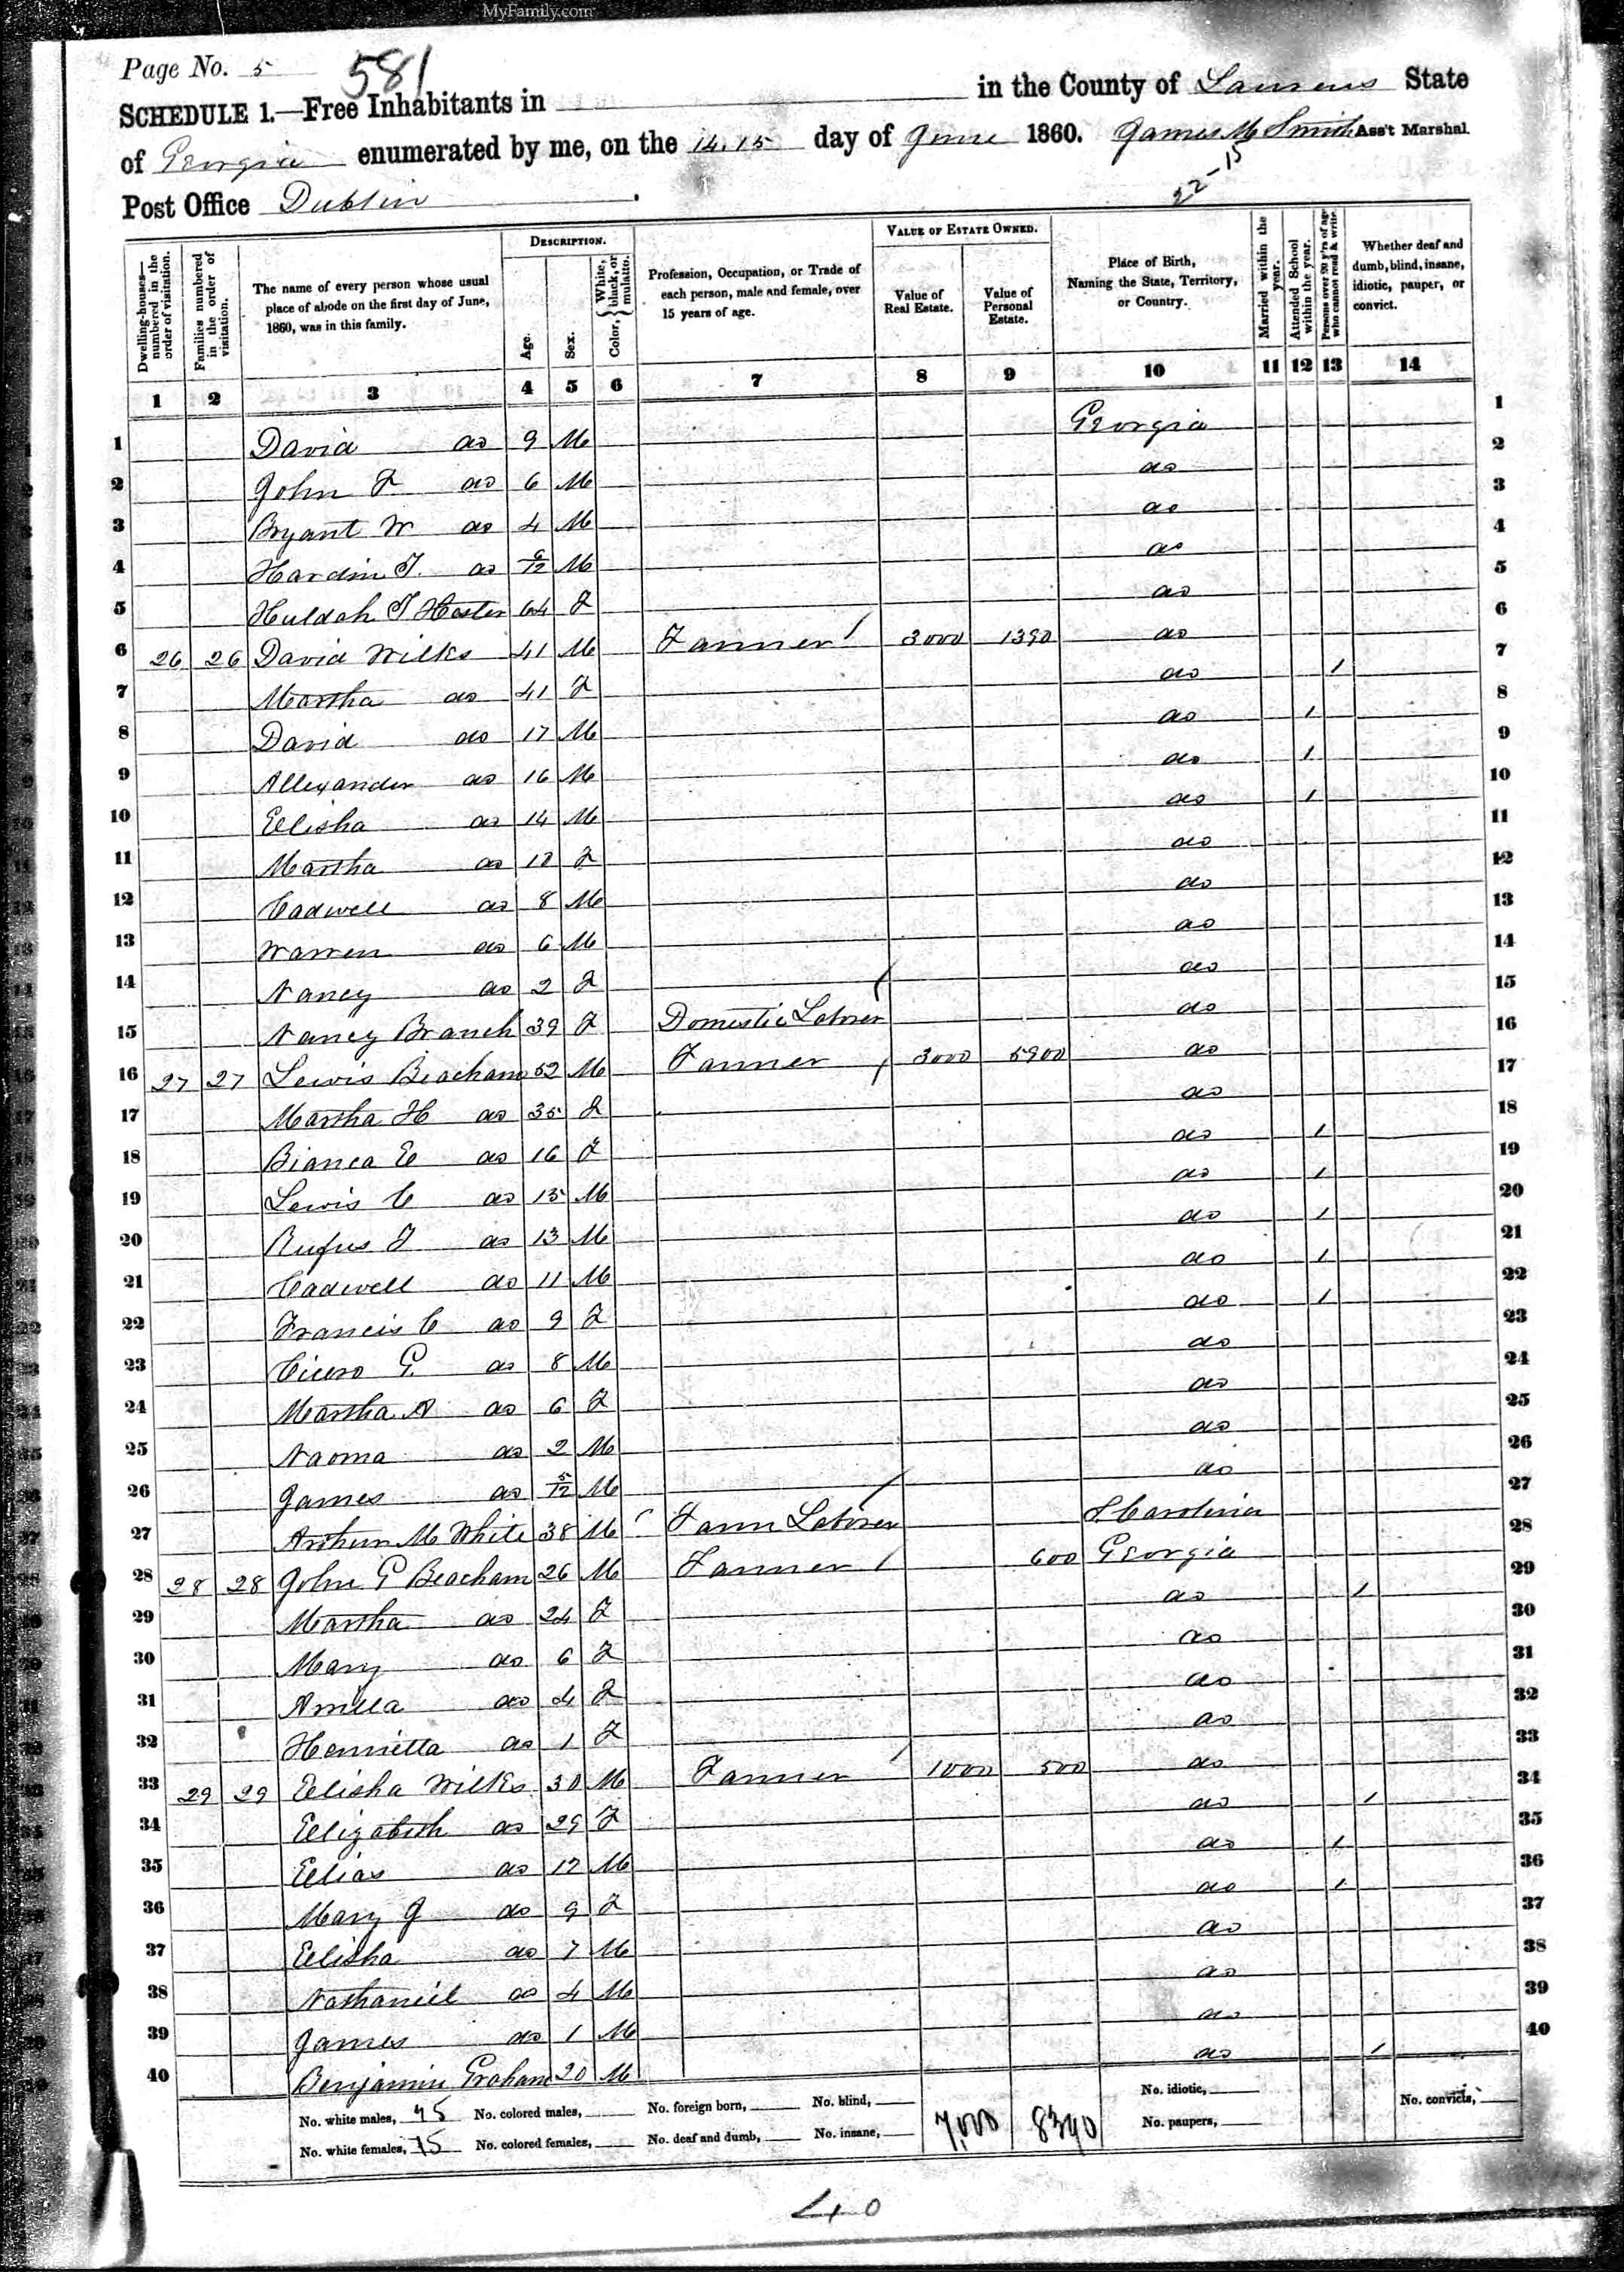 MyFamily.com
Page No. 5
581
SCHEDULE 1.—Free Inhabitants in in the County of Laurens State
of Georgia enumerated by me, on the 14, 15 day of June 1860. James M Smith Ass't Marshal
Post Office Dublin 22-15
Dwelling-houses—numbered in the order of visitation.
Families numbered in the order of visitation.
The name of every person whose usual place of abode on the first day of June, 1860, was in this family.
DESCRIPTION.
Age.
Sex.
Color, White, black, or mulatto.
Profession, Occupation, or Trade of each person, male and female, over 15 years of age.
VALUE OF ESTATE OWNED.
Value of Real Estate.
Value of Personal Estate.
Place of Birth, Naming the State, Territory, or Country.
Married within the year.
Attended School within the year.
Persons over 20 y'rs of age who cannot read & write.
Whether deaf and dumb, blind, insane, idiotic, pauper, or convict.
1 2 3 4 5 6 7 8 9 10 11 12 13 14
1 David do 9 M Georgia 1
2 John F do 6 M do 2
3 Bryant W do 4 M do 3
4 Hardin T. do /12 M do 4
5 Huldah T Hester 64 F do 5
6 26 26 David Wilks 41 M Farmer 3000 1390 do 6
7 Martha do 41 F do 1 7
8 David do 17 M do 1 8
9 Allexander do 16 M do 1 9
10 Ellisha do 14 M do 1 10
11 Martha do 12 F do 11
12 Cadwell do 8 M do 12
13 Warren do 6 M do 13
14 Nancy do 2 F do 14
15 Nancy Branch 39 F Domestic Laborer do 15
16 27 27 Lewis Beacham 52 M Farmer 3000 5900 do 16
17 Martha H do 35 F do 17
18 Bianca E do 16 F do 1 18
19 Lewis C do 15 M do 1 19
20 Rufus T do 13 M do 1 20
21 Cadwell do 11 M do 1 21
22 Francis C do 9 F do 1 22
23 Cicero G. do 8 M do 23
24 Martha A do 6 F do 24
25 Naoma do 2 M do 25
26 James do 5/12 M do 26
27 Arthur M White 38 M Farm Laborer S Carolina 27
28 28 28 John G Beacham 26 M Farmer 600 Georgia 28
29 Martha do 24 F do 1 29
30 Mary do 6 F do 30
31 Amilla do 4 F do 31
32 Hennietta do 1 F do 32
33 29 29 Ellisha Wilks 30 M Farmer 1000 500 do 33
34 Ellizabeth do 29 F do 1 34
35 Ellias do 12 M do 1 35
36 Mary J do 9 F do 1 36
37 Ellisha do 7 M do 37
38 Nathaniel do 4 M do 38
39 James do 1 M do 39
40 Benjamin Graham 20 M do 1 40
No. white males, No. colored males, No. foreign born, No. blind, No. idiotic, No. convicts,
No. white females, 15 No. colored females, No. deaf and dumb, No. insane, 7,000 8390 No. paupers,
40